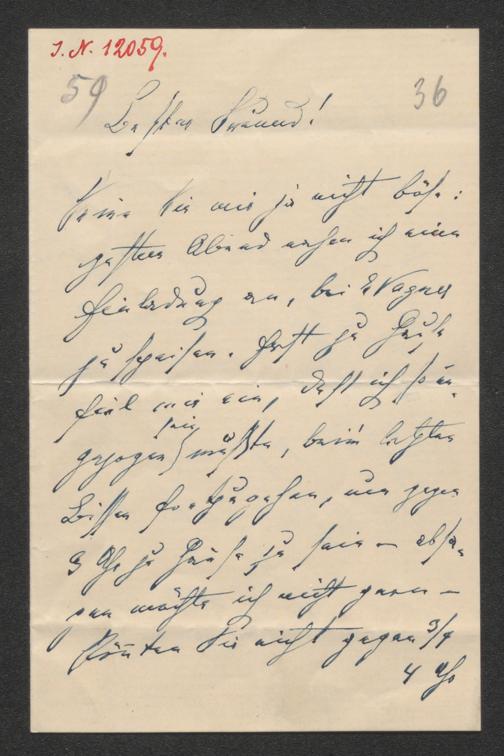 I.N. 12059.
59 36
Bester Freund!
Seien Sie mir ja nicht böse:
gestern Abend nahm ich eine
Einladung an, bei Wagner
zu speisen. Erst zu Hause
fiel mir ein, daß ich
gezogen sein müßte, beim letzten
Bissen fortzugehen, um gegen
3 Uhr zu Hause zu sein – absa-
gen möchte ich nicht gern –
Könnten Sie nicht gegen 3/4
4 Uhr